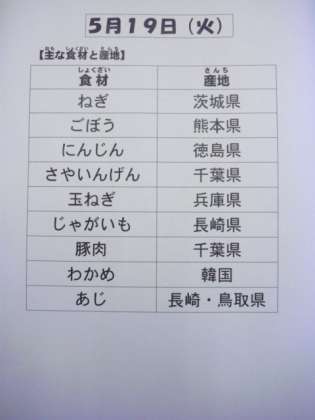 5月19日(火)
【主な食材と産地】
食材 産地
ねぎ 茨城県
ごぼう 熊本県
にんじん 徳島県
さやいんげん 千葉県
玉ねぎ 兵庫県
じゃがいも 長崎県
豚肉 千葉県
わかめ 韓国
あじ 長崎・鳥取県